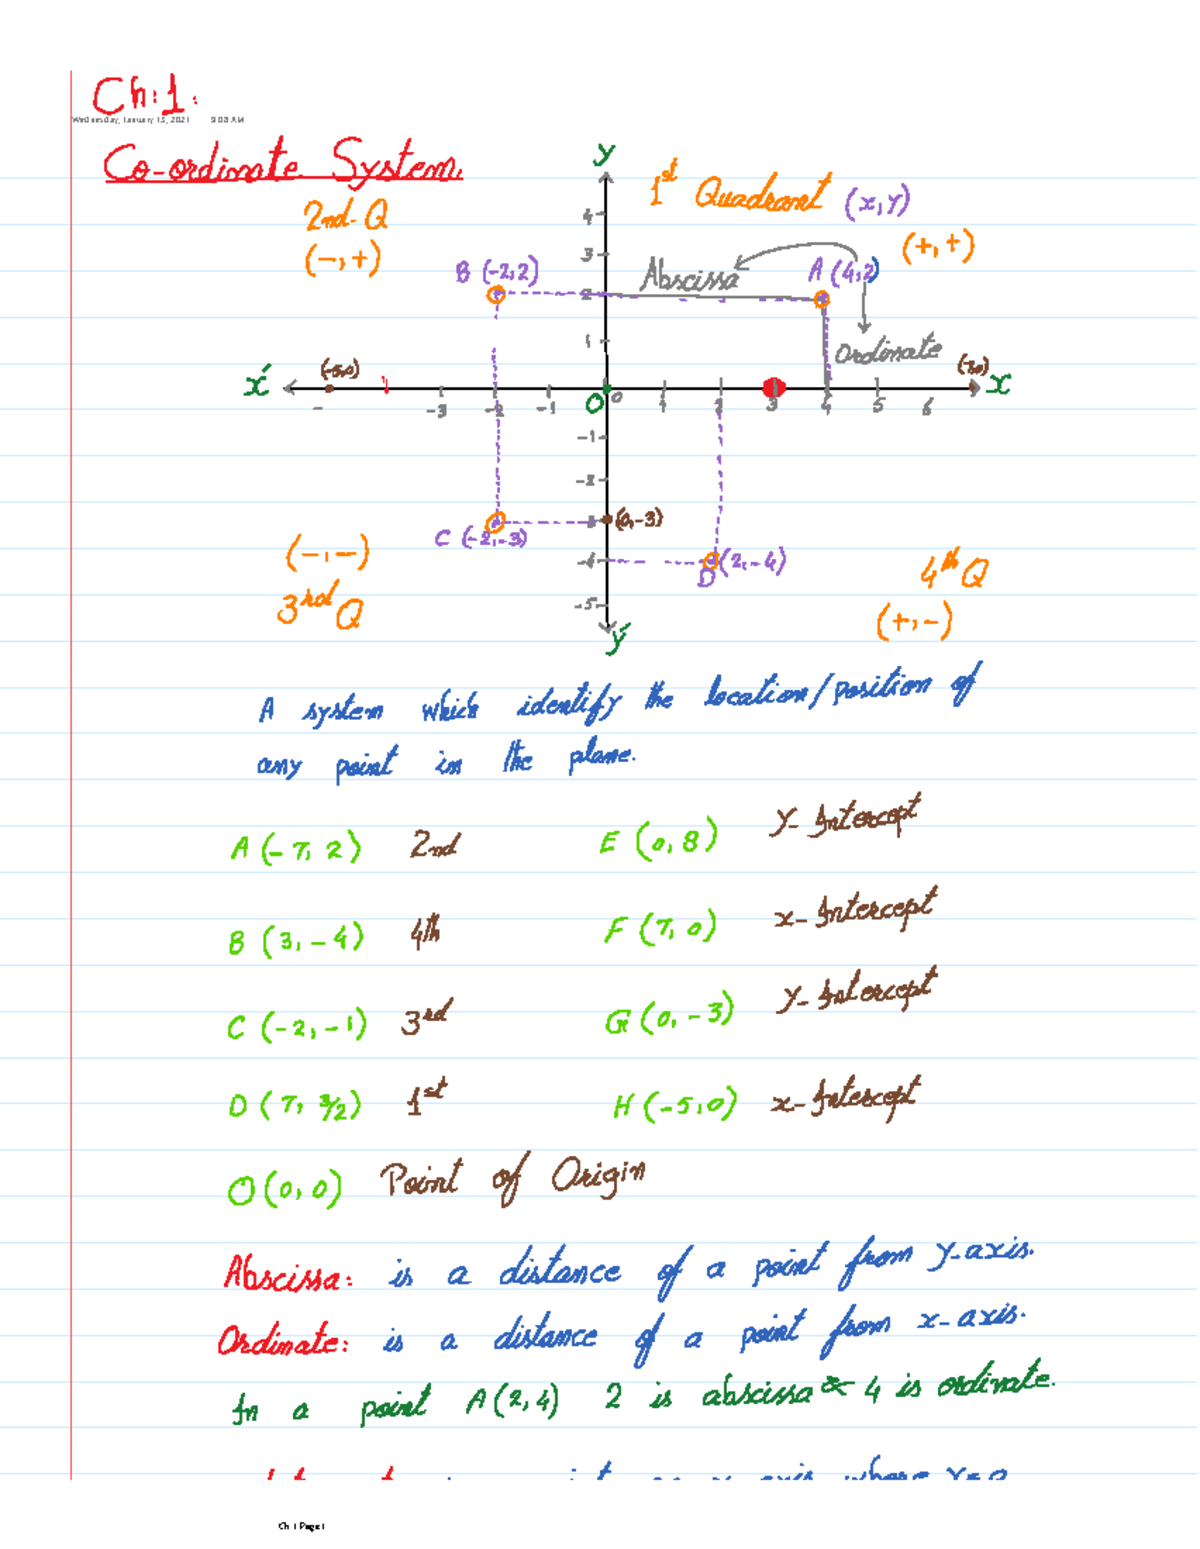 Ch:1:
Wednesday, January 13, 2021 9:08 AM
Co-ordinate System.
y
1st Quadrant (x,y)
2nd-Q
(-,+)
(+,+)
B (-2,2)
Abscissa
A (4,2)
Ordinate
4
3
2
1
x' (-5,0) (7,0) x
- -3 -2 -1 O 0 1 2 3 4 5 6
-1
-2
(0,-3)
-4
-5
C (-2,-3)
D (2,-4)
(-,-)
3rd Q
4th Q
(+,-)
y'
A system which identify the location/position of
any point in the plane.
A (-7, 2) 2nd E (0, 8) Y-Intercept
B (3, -4) 4th F (7, 0) x-Intercept
C (-2, -1) 3rd G (0, -3) Y-Intercept
D (7, 3/2) 1st H (-5,0) x-Intercept
O (0, 0) Point of Origin
Abscissa: is a distance of a point from y-axis.
Ordinate: is a distance of a point from x-axis.
In a point A(2,4) 2 is abscissa & 4 is ordinate.
Ch 1 Page 1